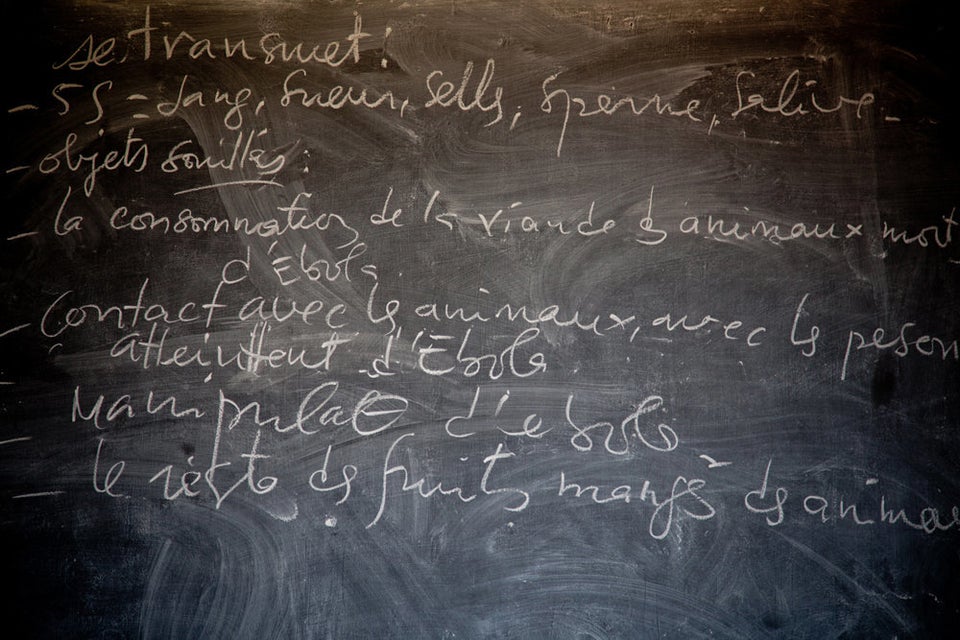 se transmet:
- 5S - Sang, Sueur, Sells, Sperme, Salive -
- objets souillés:
- la consommation de la viande ds animaux mort
d'Ebola
- Contact avec ls animaux, avec ls person
atteintent d'Ebola
- Manipulat d'ebola
- le reste ds fruits mangés ds anima